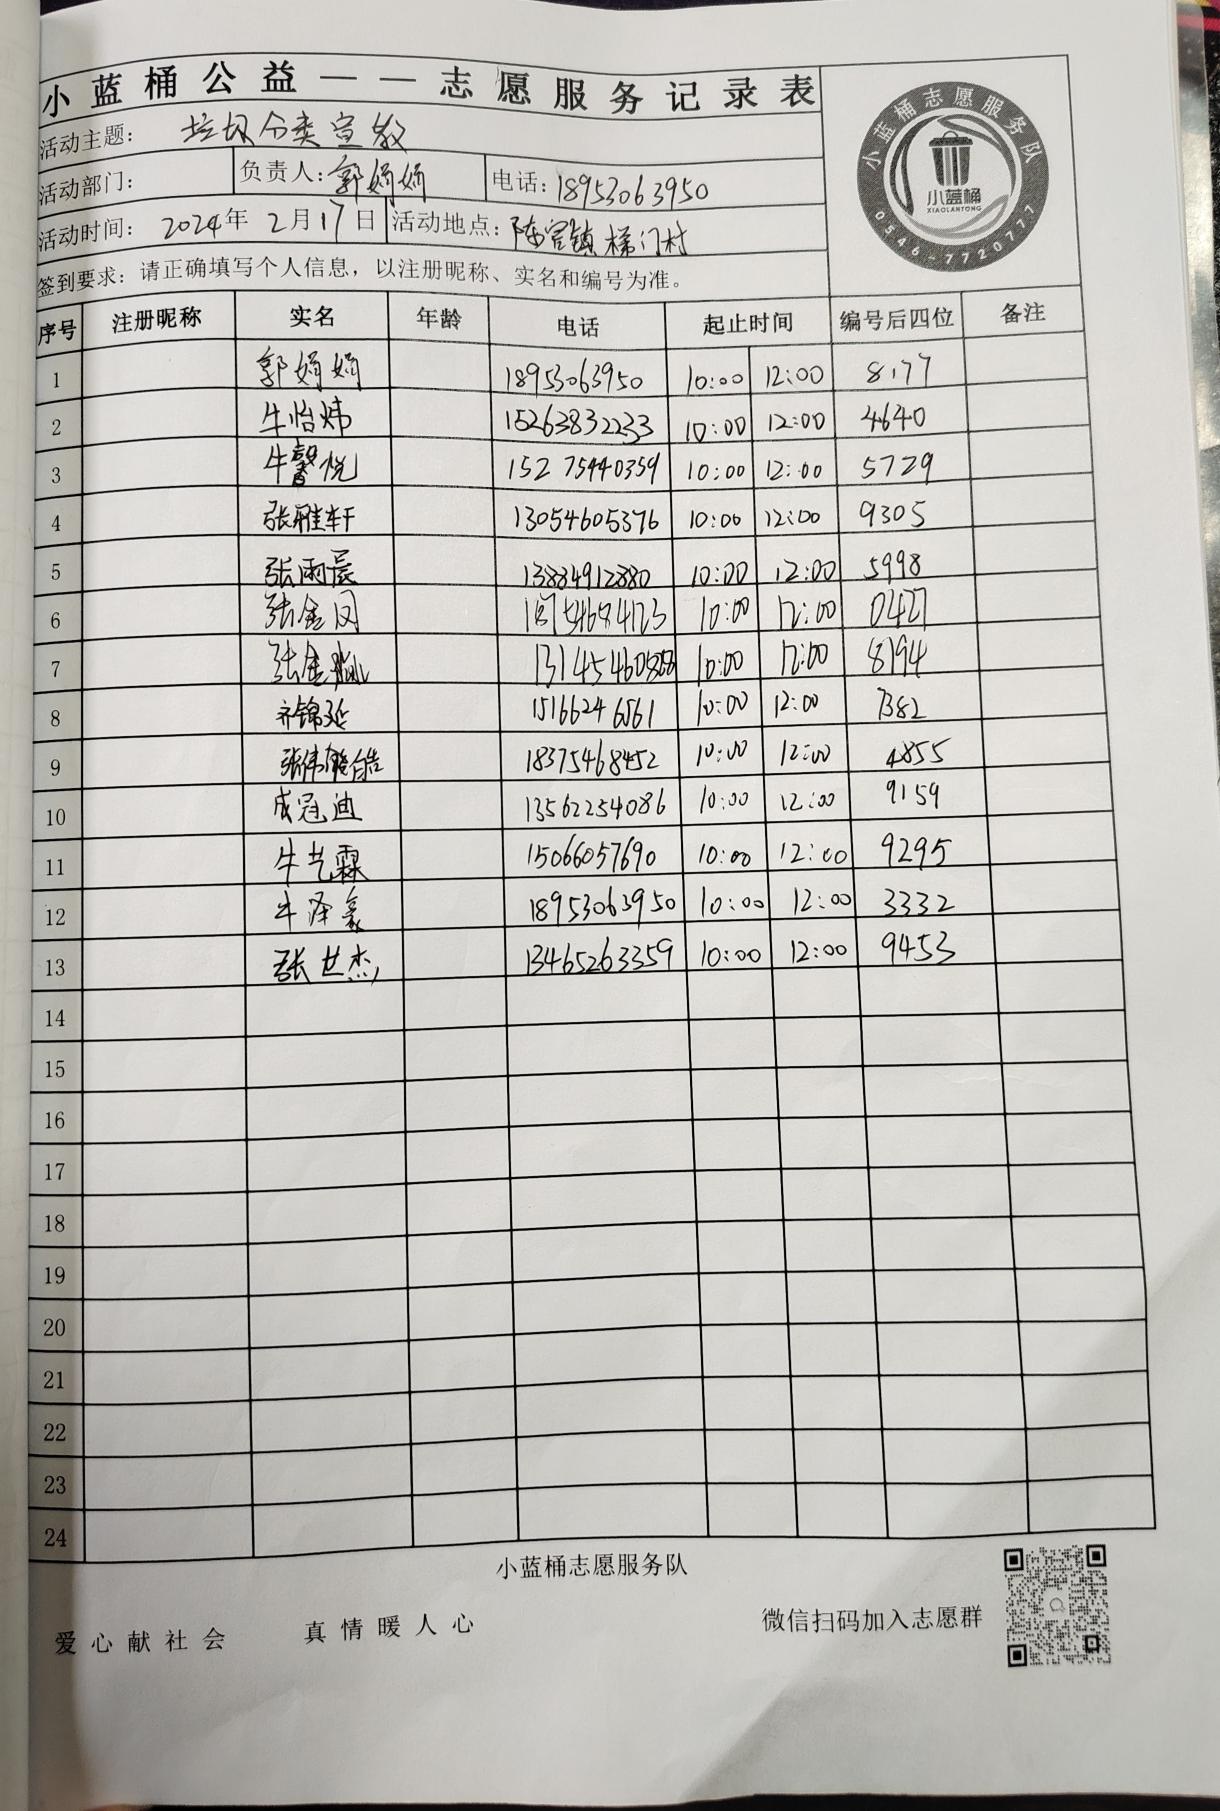 小蓝桶公益——志愿服务记录表
活动主题： 垃圾分类宣教
活动部门： 负责人：郭娟娟 电话：18953063950
活动时间： 2024年 2月17日 活动地点：陈官镇梯门村
签到要求：请正确填写个人信息，以注册昵称、实名和编号为准。
小蓝桶志愿服务队
小蓝桶
XIAOLANTONG
0546-7720777
序号 注册昵称 实名 年龄 电话 起止时间 编号后四位 备注
1 郭娟娟 18953063950 10:00 12:00 8177
2 牛怡炜 15263832233 10:00 12:00 4640
3 牛馨悦 15275440359 10:00 12:00 5729
4 张雅轩 13054605376 10:00 12:00 9305
5 张雨晨 13884912880 10:00 12:00 5998
6 张金凤 18754684123 10:00 12:00 0427
7 张金 10:00 12:00 8194
8 齐锦延 15166246561 10:00 12:00 7382
9 18375468452 10:00 12:00 4855
10 成冠迪 13562254086 10:00 12:00 9159
11 牛艺霖 15066057690 10:00 12:00 9295
12 牛泽豪 18953063950 10:00 12:00 3332
13 张世杰 13465263359 10:00 12:00 9453
14
15
16
17
18
19
20
21
22
23
24
小蓝桶志愿服务队
爱心献社会 真情暖人心 微信扫码加入志愿群